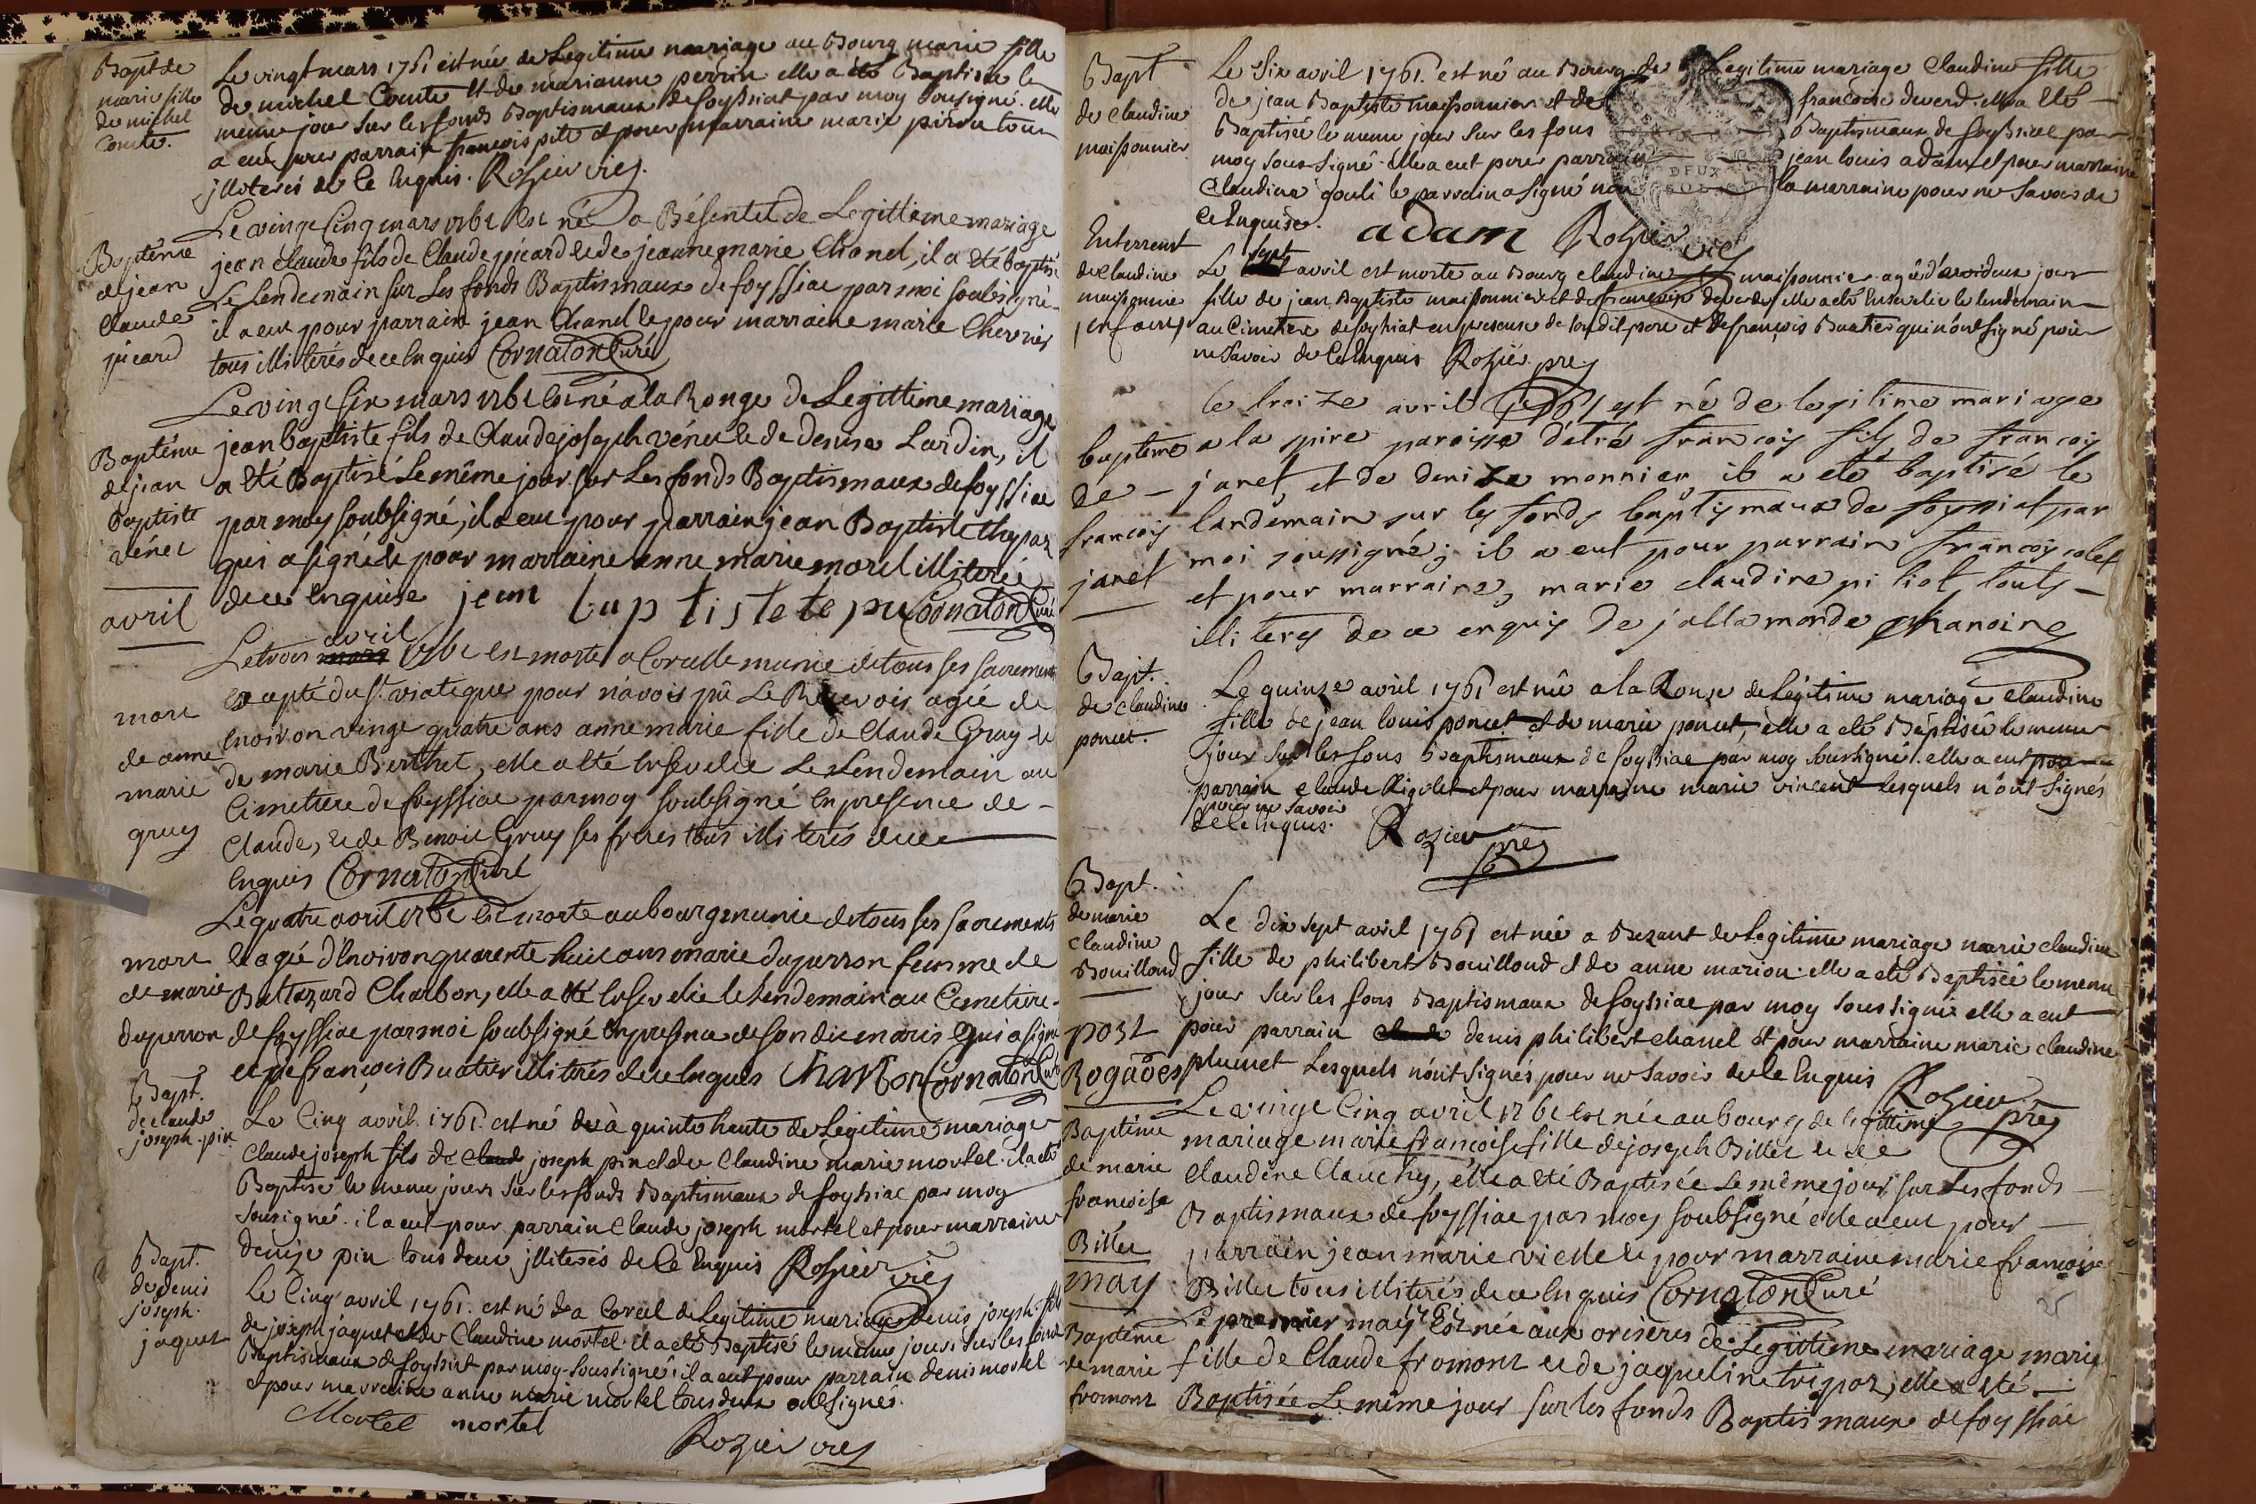 Bapt de
marie fille
de michel
Comte.
Le vingt mars 1761 est née de Legitime mariage au Bourg marie fille
de michel Comte et de marianne perrin elle a été Baptisée le
meme jour sur les fonds Baptismaux de foyssiat par moy sousigné. elle
a eut pour parrain françois pite et pour marraine marie pirou tous
illiterés de ce Enquis. Rozier vic.
Baptême
de jean
Claude
picard
Le vingt Cinq mars 1761 Est né a Bésentet de Legittime mariage
jean claude fils de Claude picard et de jeanne marie Chanel, il a été baptisé
Le Lendemain sur Les fonds Baptismaux de foyssiac par moi soubsigné
il a eut pour parrain jean Chanel et pour marraine marie Chevrier
tous illiterés de ce Enquis Cornaton Curé
Baptême
de jean
baptiste
vénet
Le vingt six mars 1761 Est né a la Ronge de Legittime mariage
jean baptiste fils de Claude joseph vénet et de Denise Lardin, il
a été Baptisé Le même jour sur Les fonds Baptismaux de foyssiac
par moy soubsigné, il a eut pour parrain jean Baptiste
qui a signé et pour marraine anne marie morel illiterée
de ce Enquise jean baptiste Cornaton Curé
avril
mort
de anne
marie
gruy
Le trois mars avril 1761 est morte a Corcelle munie de tous ses sacrements
Excepté du St. viatique pour n'avoir pû Le Recevoir agée de
Environ vingt quatre ans anne marie fille de Claude Gruy et
de marie Berthet, elle a été Ensevelie Le Lendemain au
Cimetiere de foyssiac par moy soubsigné En presence de
Claude, et de Benoit Gruy ses freres tous illiterés de ce
Enquis Cornaton Curé
mort
de marie
duperron
Le quatre avril 1761 Est morte au bourg munie de tous ses sacrements
et agée d'Environ quarente huit ans marie duperron femme de
Baltazard Charbon, elle a été Ensevelie le Lendemain au Cimetiere
de foyssiac par moi soubsigné En presence de son dit maris qui a signé
et de françois Buatier illiterés de ce Enquis Charbon Cornaton Curé
Bapt.
de claude
joseph pin
Le Cinq avril 1761. est né à quinte haute de Legitime mariage
Claude joseph fils de Claude joseph pin et de Claudine marie mortel. il a été
Baptisé le meme jours sur les fonds Baptismaux de foyssiac par moy
sousigné. il a eut pour parrain Claude joseph mortel et pour marraine
denise pin tous deux illiterés de Ce Enquis Rozier vic
Bapt.
de denis
joseph.
jaquet
Le Cinq avril 1761. est né a Corcel de Legitime mariage denis joseph. fils
de joseph jaquet et de Claudine mortel. il a été Baptisé le meme jours sur les fonds
Baptismaux de foyssiat par moy soussigné; il a eut pour parrain denis mortel
et pour marraine anne marie mortel tous deux ont signés.
Mortel mortel
Rozier vic
Bapt
de Claudine
maissonnier
Le Six avril 1761. est né au Bourg de Legitime mariage Claudine fille
de jean Baptiste maissonnier et de francoise deverd. elle a été
Baptisée le meme jour sur les fons Baptismaux de foyssiac par
moy sous signé. elle a eut pour parrain jean louis adam et pour marraine
Claudine gouli le parrain a signé non la marraine pour ne savoir de
Ce Enquise. adam Rozier vic
DEUX
SOLS
Enterremt
de Claudine
maissonnier
enfant
Le sept avril est morte au Bourg claudine maissonnier agée d'environ deux jour
fille de jean Baptiste maissonnier et de francoise deverd, elle a été Ensevelie le lendemain
au Cimetiere de foyssiat en presence de son dit pere et de françois Buatier qui n'ont signé pour
ne savoir de Ce Enquis Rozier vic
baptême
de
francois
janet
le treize avril 1761 est né de legitime mariage
a la pire paroisse d'étré francois fils de francois
janet et de denize monnier, il a eté baptisé le
landemain sur les fonds baptismaux de foyssiat par
moi soussigné; il a eut pour parrain francois colet
et pour marraine, marie claudine pitiot touts
illiterés de ce enquis De j'allamonde chanoine
Bapt.
de Claudine
poncet.
Le quinze avril 1761 est née a la Ronze de Légitime mariage Claudine
fille de jean louis poncet et de marie poncet, elle a été Baptisée le meme
jour sur les fons Baptismaux de foyssiac par moy soussigné. elle a eut pour
parrain claude Rigolet et pour marraine marie vincent lesquels n'ont signés
pour ne savoir
de Ce Enquis. Rozier vic
Bapt.
de marie
Claudine
Bouilloud
Le dix sept avril 1761 est née a Bezant de Legitime mariage marie claudine
fille de philibert Bouilloud et de anne marion. elle a eté Baptisée le meme
jour sur les fons Baptismaux de foyssiac par moy soussigné elle a eut
pour parrain claude denis philibert chanel et pour marraine marie claudine
plumet Lesquels n'ont signés pour ne savoir de Ce Enquis Rozier vic
post
Rogaões
Baptême
de marie
francoise
Billet
Le vingt Cinq avril 1761 Est née au bourg de legittime
mariage marie françoise fille de joseph Billet et de
Claudine Clauchy, elle a été Baptisée Le même jour sur Les fonds
Baptismaux de foyssiac par moy soubsigné elle a eut pour
parrain jean marie vielle et pour marraine marie francoise
Billet tous illiterés de ce Enquis Cornaton Curé
may
25
Baptême
de marie
fromont
Le premier may 1761 Est née aux oriseres de Legittime mariage marie
fille de Claude fromont et de jaqueline tripoz, elle a été
Baptisée Le même jour sur les fonds Baptismaux de foyssiac